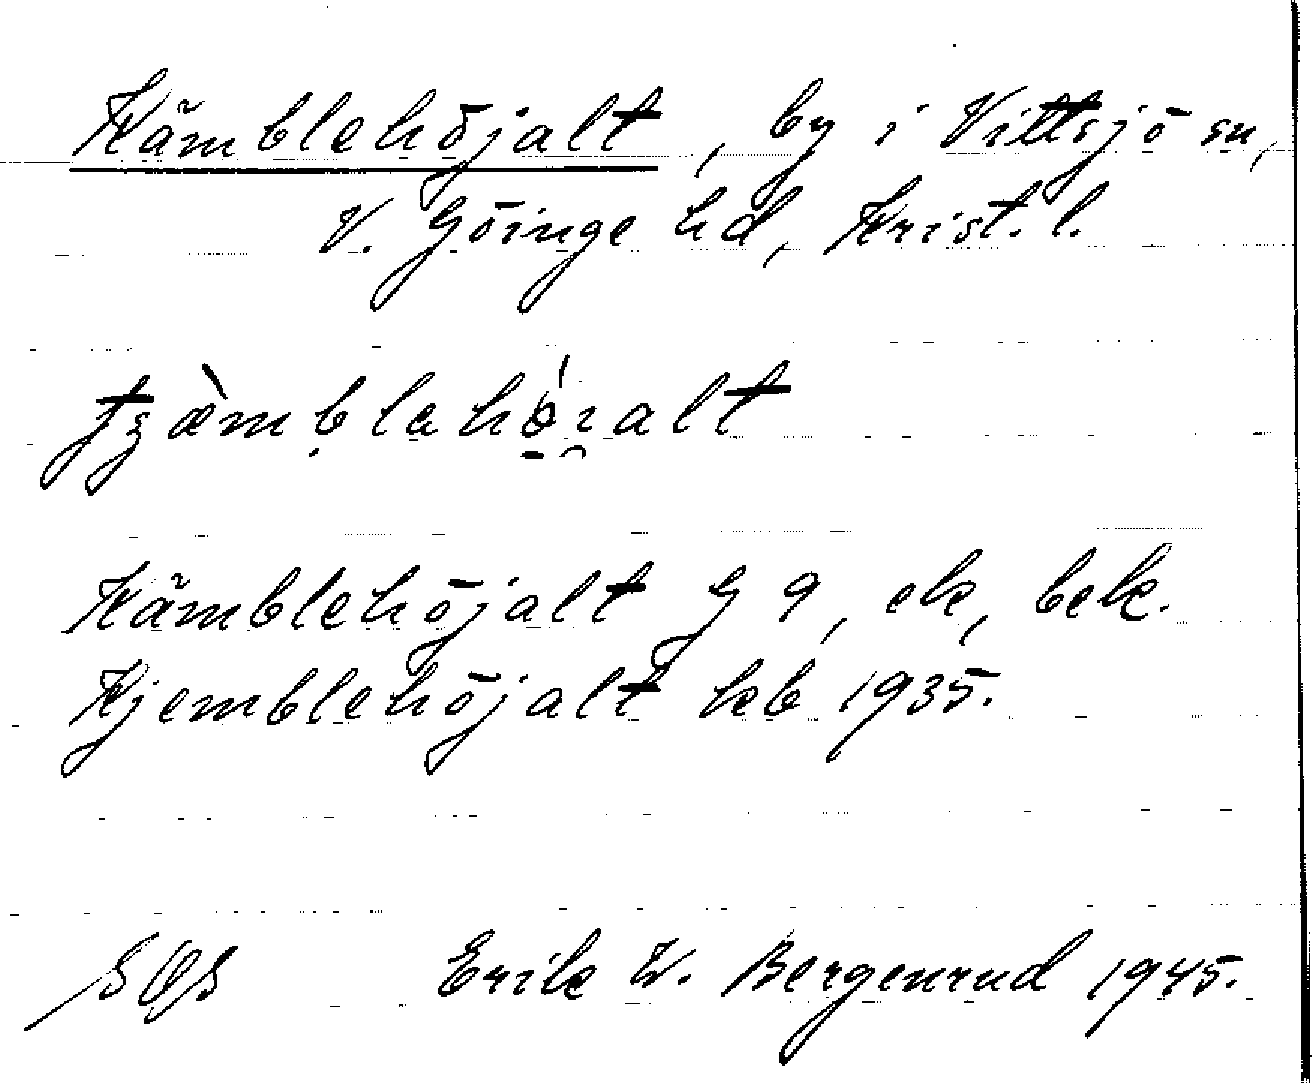 Kämblehöjalt, by i Vittsjö sn,
V. Göinge hd, Krist. l.
Kämblehöjalt G 9, ek, bek.
Kjemblehöjalt kb 1935.
Erik W. Bergenrud 1945.